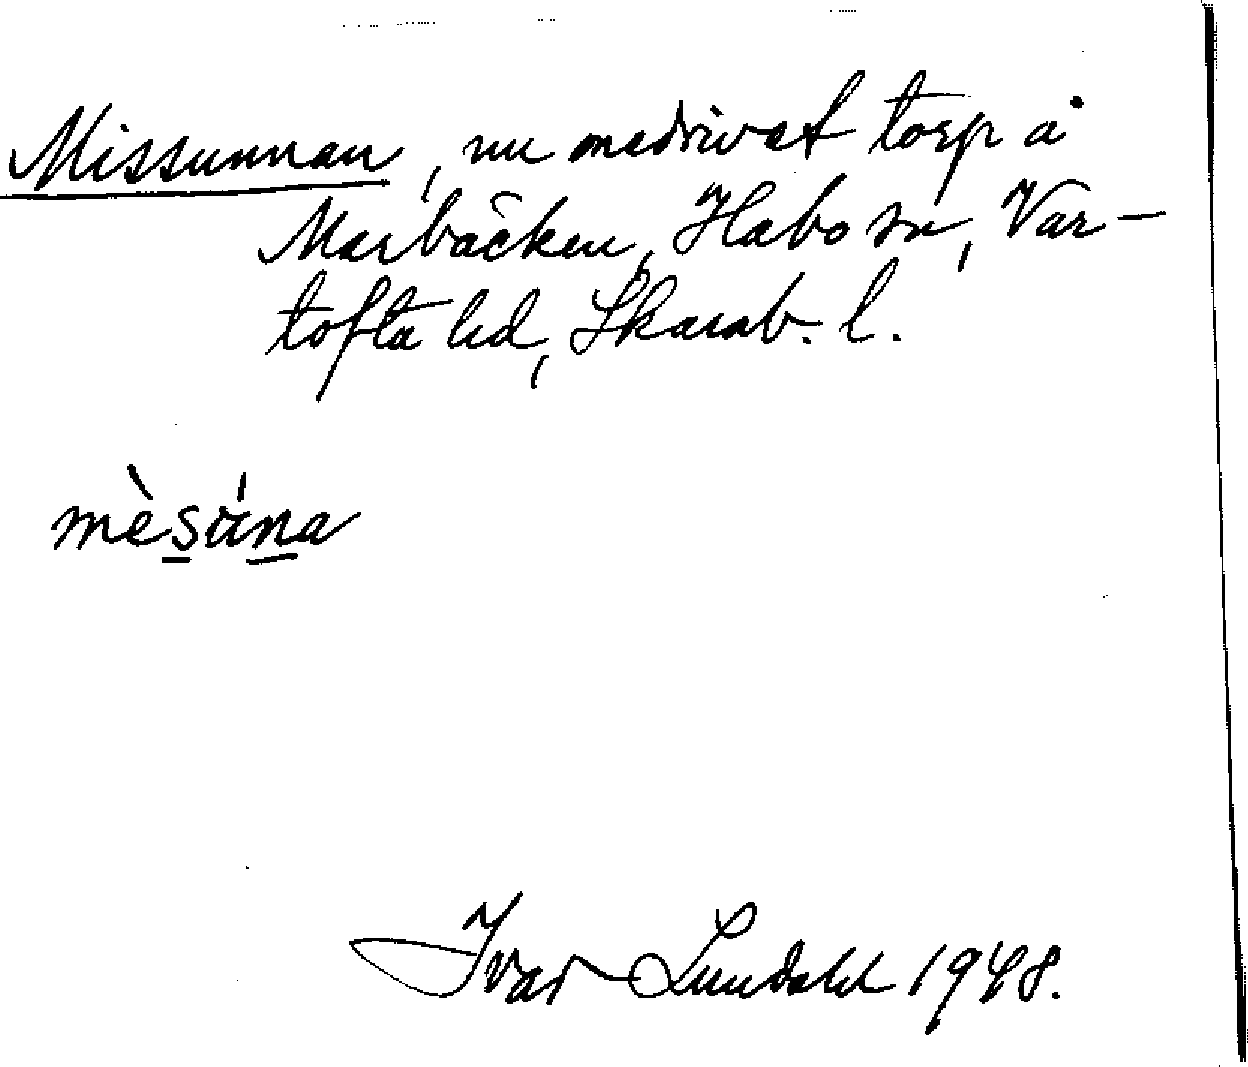 Missunnan, nu nedrivet torp å
Marbäcken, Habo sn, Var-
tofta hd, Skarab. l.
mèsúna
Ivar Lundahl 1948.